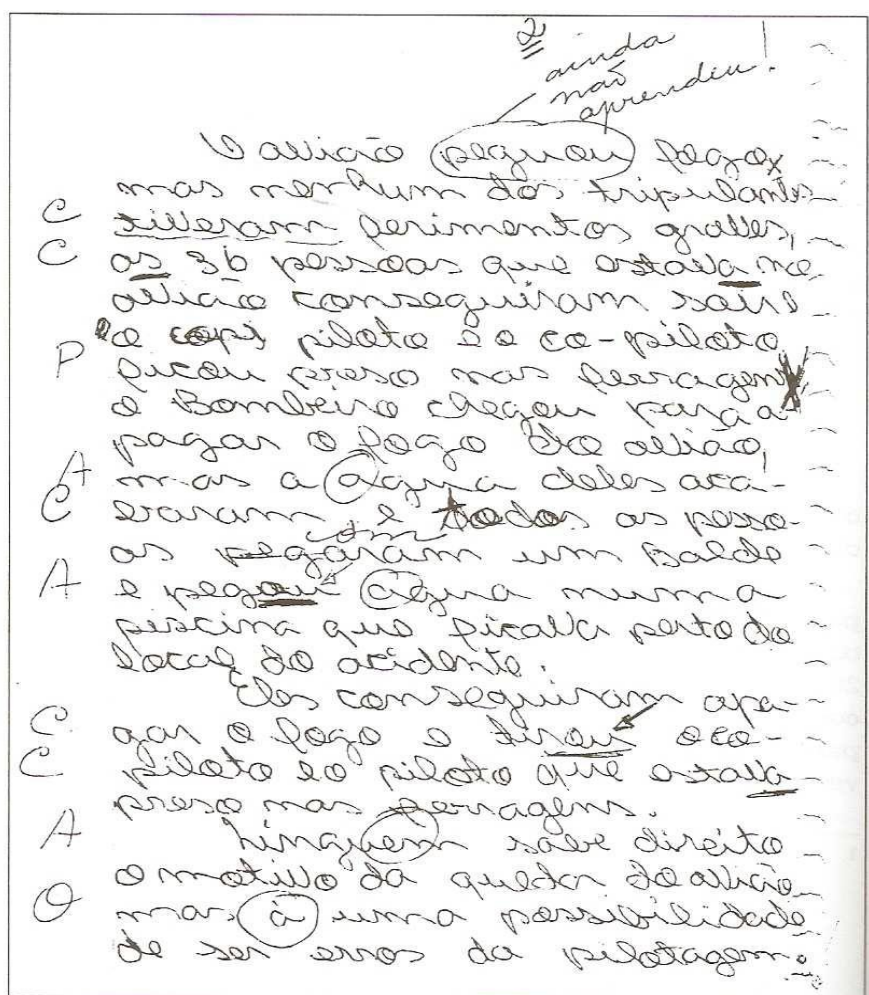 2
ainda
não
aprendeu!
O avião peguou fogo,
mas nenhum dos tripulantes
C tiveram ferimentos graves,
C as 36 pessoas que estava no
avião conseguiram sair
e o piloto e o co-piloto
P ficou preso nas ferragem
o Bombeiro chegou para a-
pagar o fogo do avião,
A mas a agua deles aca-
C baram e todos as pesso-
as pegaram um Balde
am
A e pegou água numa
piscina que ficava perto do
local do acidente.
Eles conseguiram apa-
C gar o fogo e tirou o co-
C piloto e o piloto que estava
preso nas ferragens.
A Ninguem sabe direito
o motivo da queda do avião
O mas à uma possibilidade
de ser erros da pilotagem.